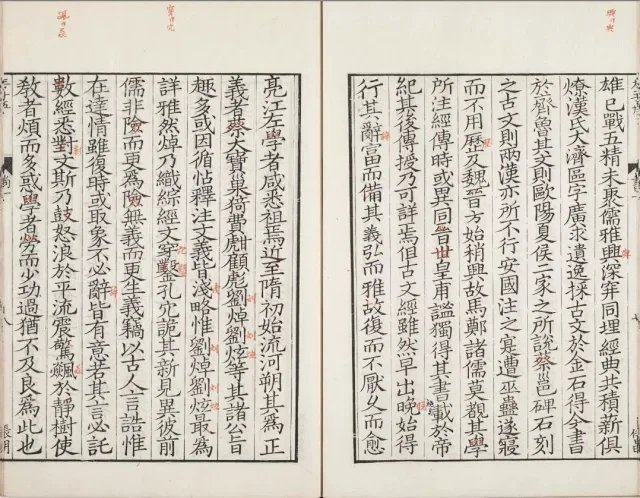 雄已戰五精未聚儒雅與深穽同埋經典共積新俱
燎漢氏大濟區宇廣求遺逸採古文於金石得今書
於齊魯其文則歐陽夏侯二家之所說蔡邕碑石刻
之古文則兩漢亦所不行安國注之寔遭巫蠱遂寢
而不用歷及魏晉方始稍興故馬鄭諸儒莫覩其學
所注經傳時或異同晉世皇甫謐獨得其書載於帝
紀其後傳授乃可詳焉但古文經雖然早出晚始得
行其辭富而備其義弘而雅故復而不厭久而愈
亮江左學者咸悉祖焉近至隋初始流河朔其為正
義者蔡大寶巢猗費甝顧彪劉焯劉炫等其諸公旨
趣多或因循帖釋注文義皆淺略惟劉焯劉炫最為
詳雅然焯乃織綜經文穿鑿孔穴詭其新見異彼前
儒非險而更為險無義而更生義竊以古人言誥惟
在達情雖復時或取象不必辭皆有意若其言必託
數經悉對文斯乃鼓怒浪於平流震驚飇於靜樹使
敎者煩而多惑學者勞而少功過猶不及良為此也